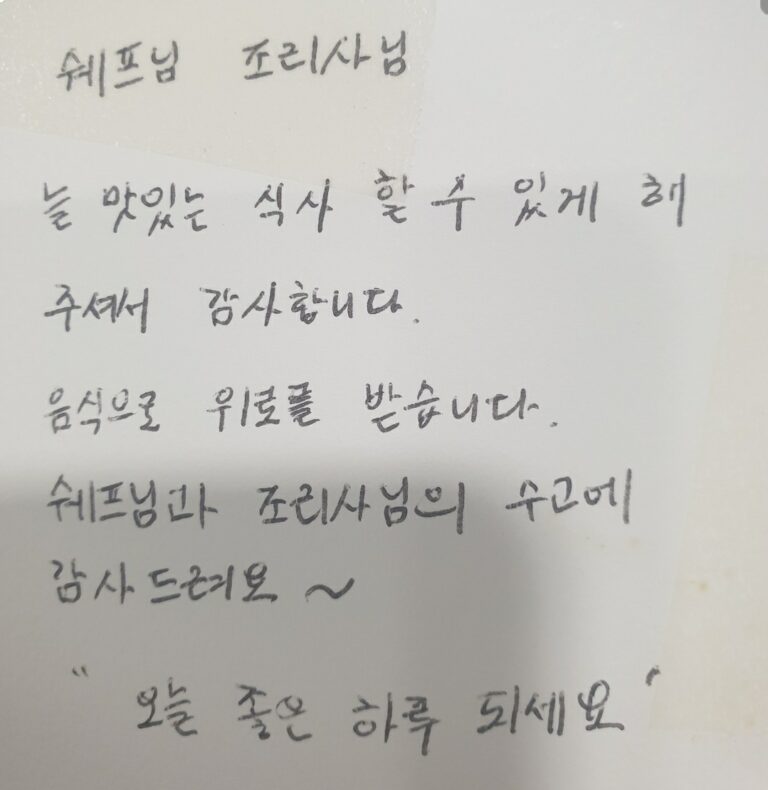 쉐프님 조리사님
늘 맛있는 식사 할 수 있게 해
주셔서 감사합니다.
음식으로 위로를 받습니다.
쉐프님과 조리사님의 수고에
감사드려요 ~
" 오늘 좋은 하루 되세요 "